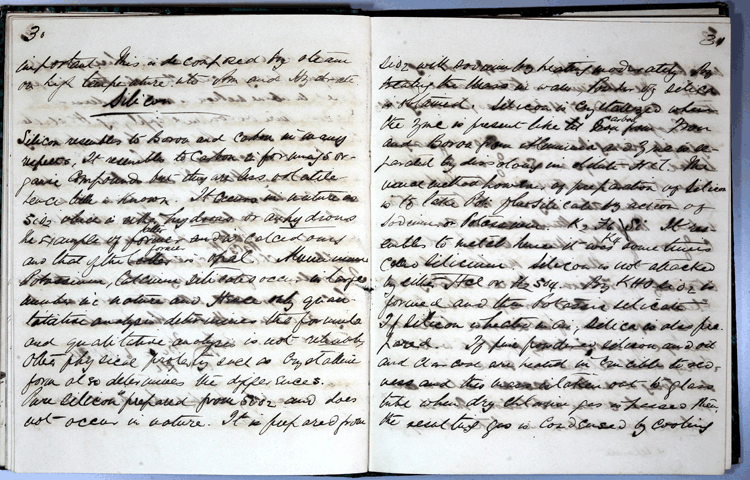 30
important. This is decomposed by steam
on high temperature into and Hydrate
Silicon
Silicon resembles to Boron and carbon in many
respects, It resembles to Carbon in forming so or-
ganic compounds but they are less volatile
is known. It occurs in nature as
Sio2 which is either hydrous or anhydrous
the example of former latter and is calcedony
and that of the former is opal. Aluminium
Potassium, Calcium silicates occur in large
number in nature and Hence only quan-
titative analysis determines the formula
and qualitative analysis is not reliably
Other physical property such as crystalline
form also determines the differences.
Pure silicon prepared from Sio2 and does
not occur in nature. It is prepared from
31
with sodium by heating moderately By
treating the mass in water Powder of silicon
is obtained. Silicon is crystallized when
the Zinc is present like carbon from Iron
and Boron from Aluminia and Zinc is se-
parated by dissolving in dilute Hcl. The
usual method however of preparation of Silicon
is to take Pot by action of
Sodium or Potassium. It res-
embles to metal hence it was sometimes
called Silicium. Silicon is not attacked
by either Hcl or H2So4. By KHO Sio2 is
formed and then Potassic silicate
If Silicon is heated in air, Silica is also pre-
pared. If pure powdered silicon and oil
and charcoal are heated in Crucible to red-
ness and this mass is taken out to glass
tube when dry chlorine gas is passed thro,
the resulting gas is condensed by cooling